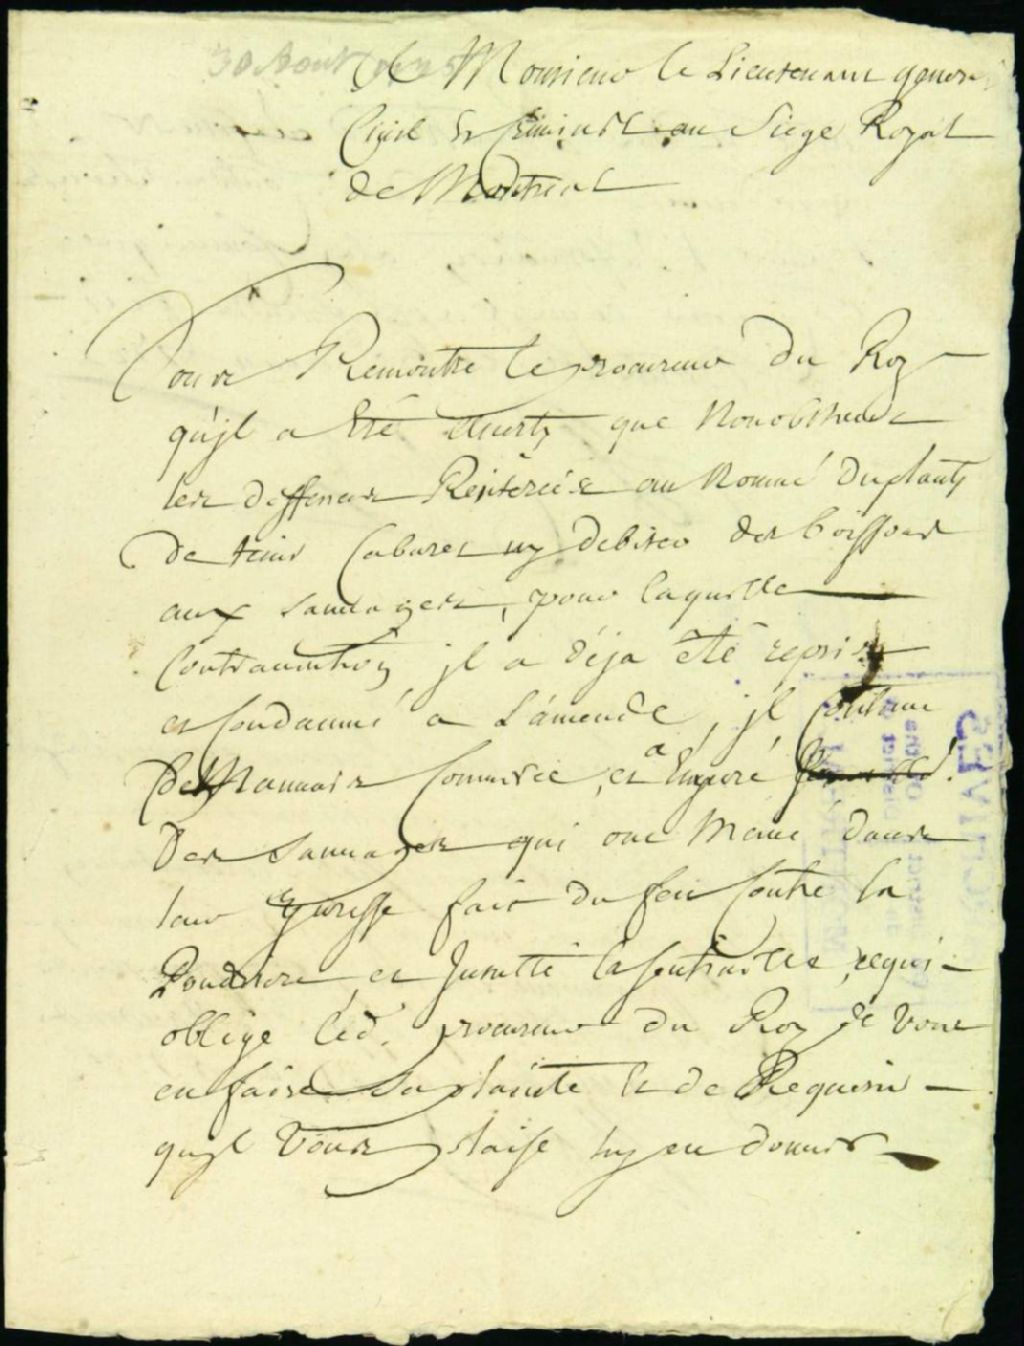 30 Aout
A Monsieur le Lieutenant general
Civil et Criminel au Siege Royal
de Montreal
Vous Remontre le procureur du Roy
qu'jl a Eté averty que Nonobstant
les deffences Reïterées au Nommé Duplanty
de tenir Cabaret ny debiter des boissons
aux sauvages, pour laquelle
Contravention jl a déja été repris
et Condamné a L'amende, jl Continue
Ce Mauvais Commerce, et a Enyvré
Des sauvages qui ont Meme dans
leur yvresse fait du feu Contre la
Poudriere et Jnsulté la sentinelle, ce qui
oblige led. procureur du Roy de vous
en faire sa plainte Et de Requerir
qu'jl Vous plaise luy en donner
ARCHIVES